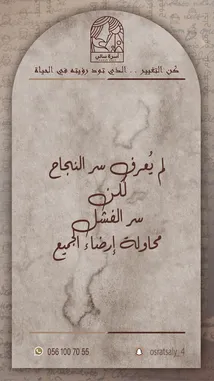 أسرة سالي
كن التغيير .. الذي تود رؤيته في الحياة
لم يُعرف سر النجاح
لكن
سر الفشل
محاولة إرضاء الجميع
056 100 70 55
osratsaly_4